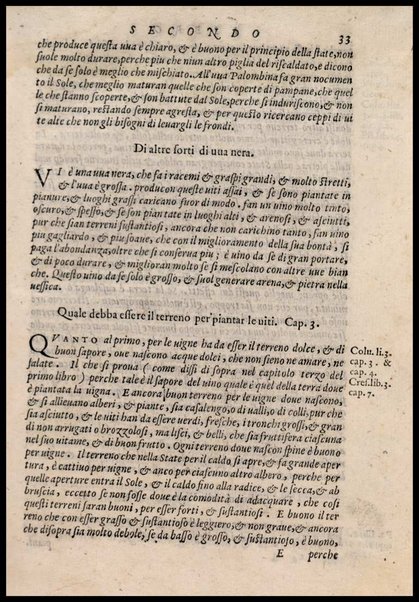 SECONDO
33
che produce questa uua è chiaro, & è buono per il principio della state, non
suole molto durare, perche piu che niun altro piglia del riscaldato, e dicono
che da se solo è meglio che mischiato. All'uua Palombina fa gran nocumen
to il Sole, che meglio maturan quelle che son coperte di pampane, che quel
le che stanno scoperte, & son battute dal Sole, perche si induriscono, & non
si maturano, restando sempre agresta, & per questo ricercano ceppi di ui
te alte che non gli bisogni di leuargli le frondi.
Di altre sorti di uua nera.
VI è una uua nera, che fa i racemi & graspi grandi, & molto stretti,
& l'uua è grossa. producon queste uiti assai, & se sono piantate in
pianure, & luoghi grassi caricano fuor di modo, fan un uino molto tinto,
oscuro, & spesso, & se son piantate in luoghi alti, & arenosi, & asciutti,
pur che sian terreni sustantiosi, ancora che non carichino tanto, fan uino
piu gagliardo, & piu soaue, che con il miglioramento della sua bontà, si
paga l'abondanza, oltre che si conserua piu; è uino da se di gran portare,
& di poco durare, & miglioran molto se si mescolano con altre uue bian
che. Questo uino da se solo è grosso, & suol generare arena, & pietra nella
uessica.
Quale debba essere il terreno per piantar le uiti. Cap. 3.
QVANTO al primo, per le uigne ha da esser il terreno dolce, & di
buon sapore, oue nascono acque dolci, che non sieno ne amare, ne
salate. Il che si proua (come dissi di sopra nel capitolo terzo del
primo libro) perche tale è il sapore del uino quale è quel della terra doue
è piantata la uigna. E ancora buon terreno per le uigne doue nascono,
& si allieuano alberi, & piante, sia casalengo, o di ualli, o di colli, pur che
sia asciutto, & le uiti han da essere uerdi, fresche, i tronchi grossi, & gran
di non arrugati o brozzolosi, ma lisci, & belli, che sia fruttifera ciascuna
nel suo uitame, & di buon frutto. Ogni terreno doue nascon spine è buono
per uigne. Il terreno che nella State per il caldo si apre, & fa grande aper
tura, è cattiuo per uigne, & anco per ciascuno altro albero, perche per
quelle aperture entra il Sole, & il caldo fino alla radice, & le secca, & ab
bruscia, eccetto se non fosse doue è la comodità di adacquare, che cosi
questi terreni saran buoni, per esser forti, & sustantiosi. E buono il ter
reno che con esser grasso & sustantioso è leggiero, & non graue, & ancora
che disopra sia molto debole, se da basso è grosso, & sustantioso, è buono,
E perche
Colu. li. 3.
cap. 3. &
cap. 4.
Cres. lib. 3.
cap. 7.